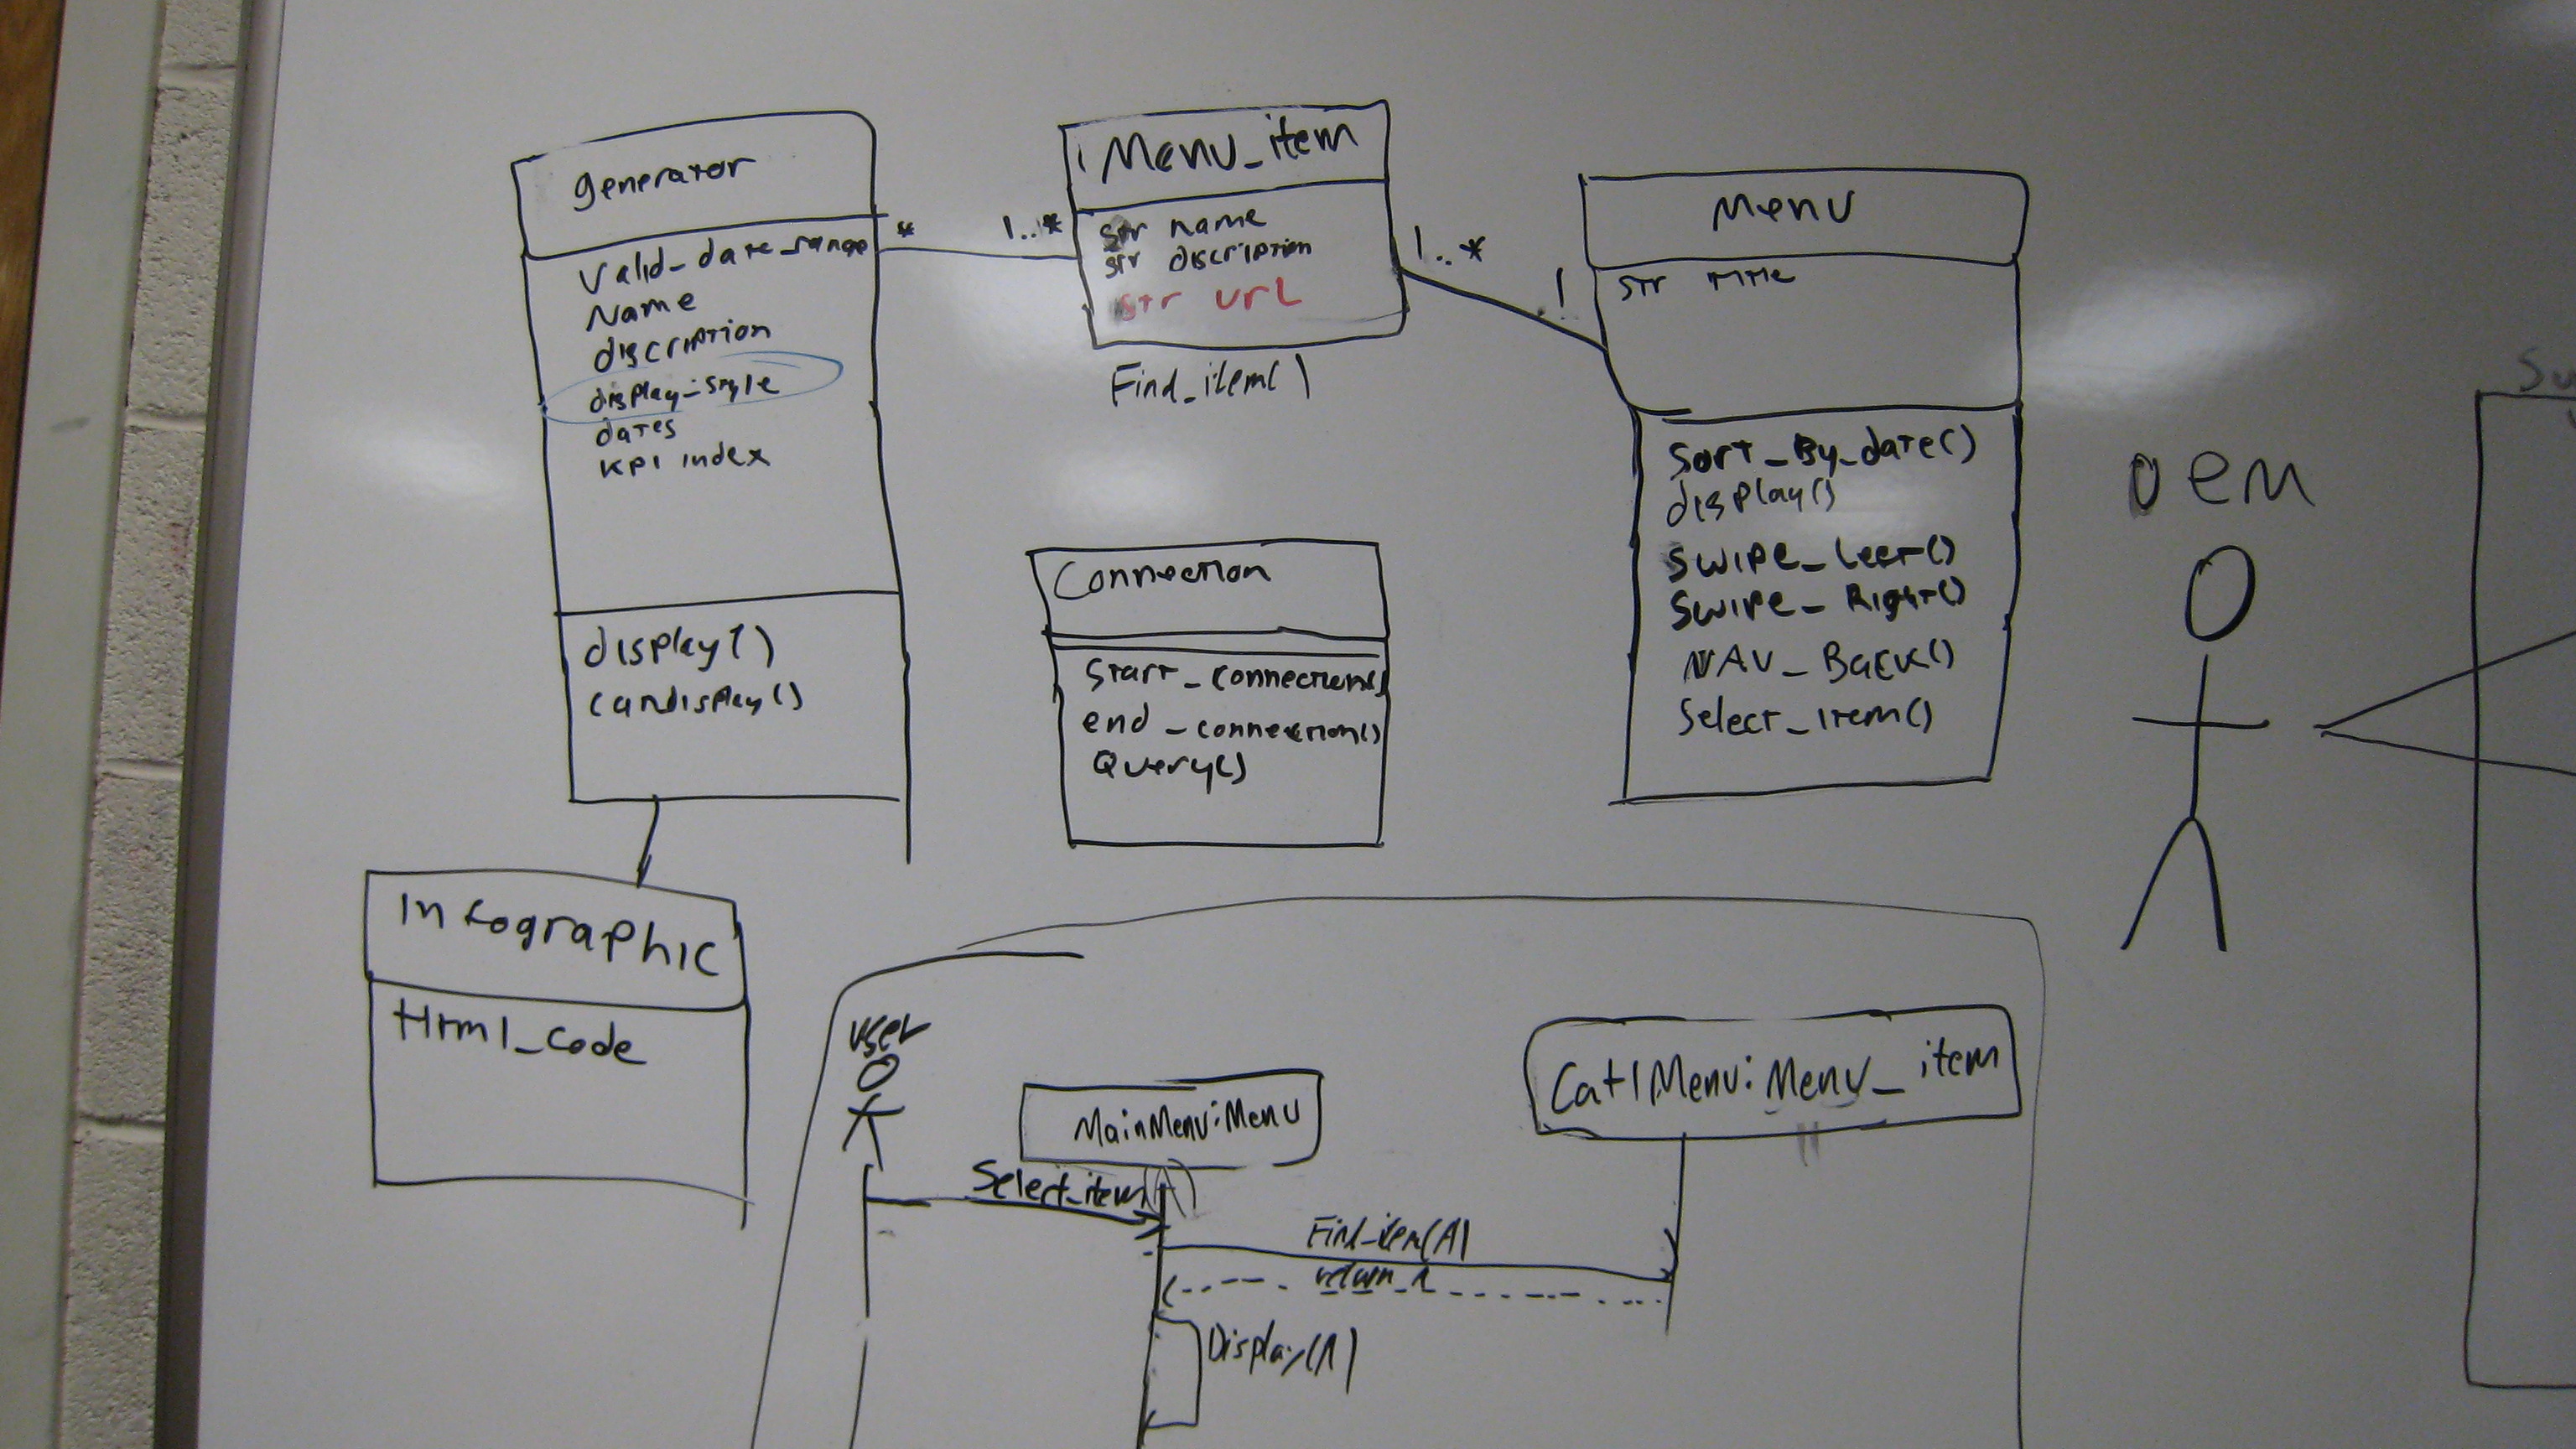 generator
Valid_date_range
Name
discription
display_style
dates
KPI index
display()
candisplay()
*
1..*
Menu_item
str name
str discription
str url
Find_item()
1..*
1
Menu
str title
Sort_By_date()
display()
Swipe_Left()
Swipe_Right()
NAV_Back()
Select_item()
Connection
Start_connection()
end_connection()
Query()
Infographic
Html_Code
oem
user
MainMenu:Menu
Cat1Menu:Menu_item
Select_item(A)
Find_item(A)
return A
Display(A)